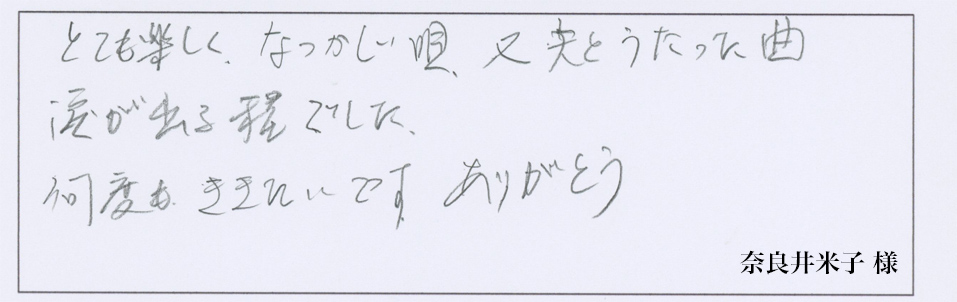 とても楽しく、なつかしい唄、又夫とうたった曲
涙が出る程でした、
何度もききたいです ありがとう
奈良井米子 様